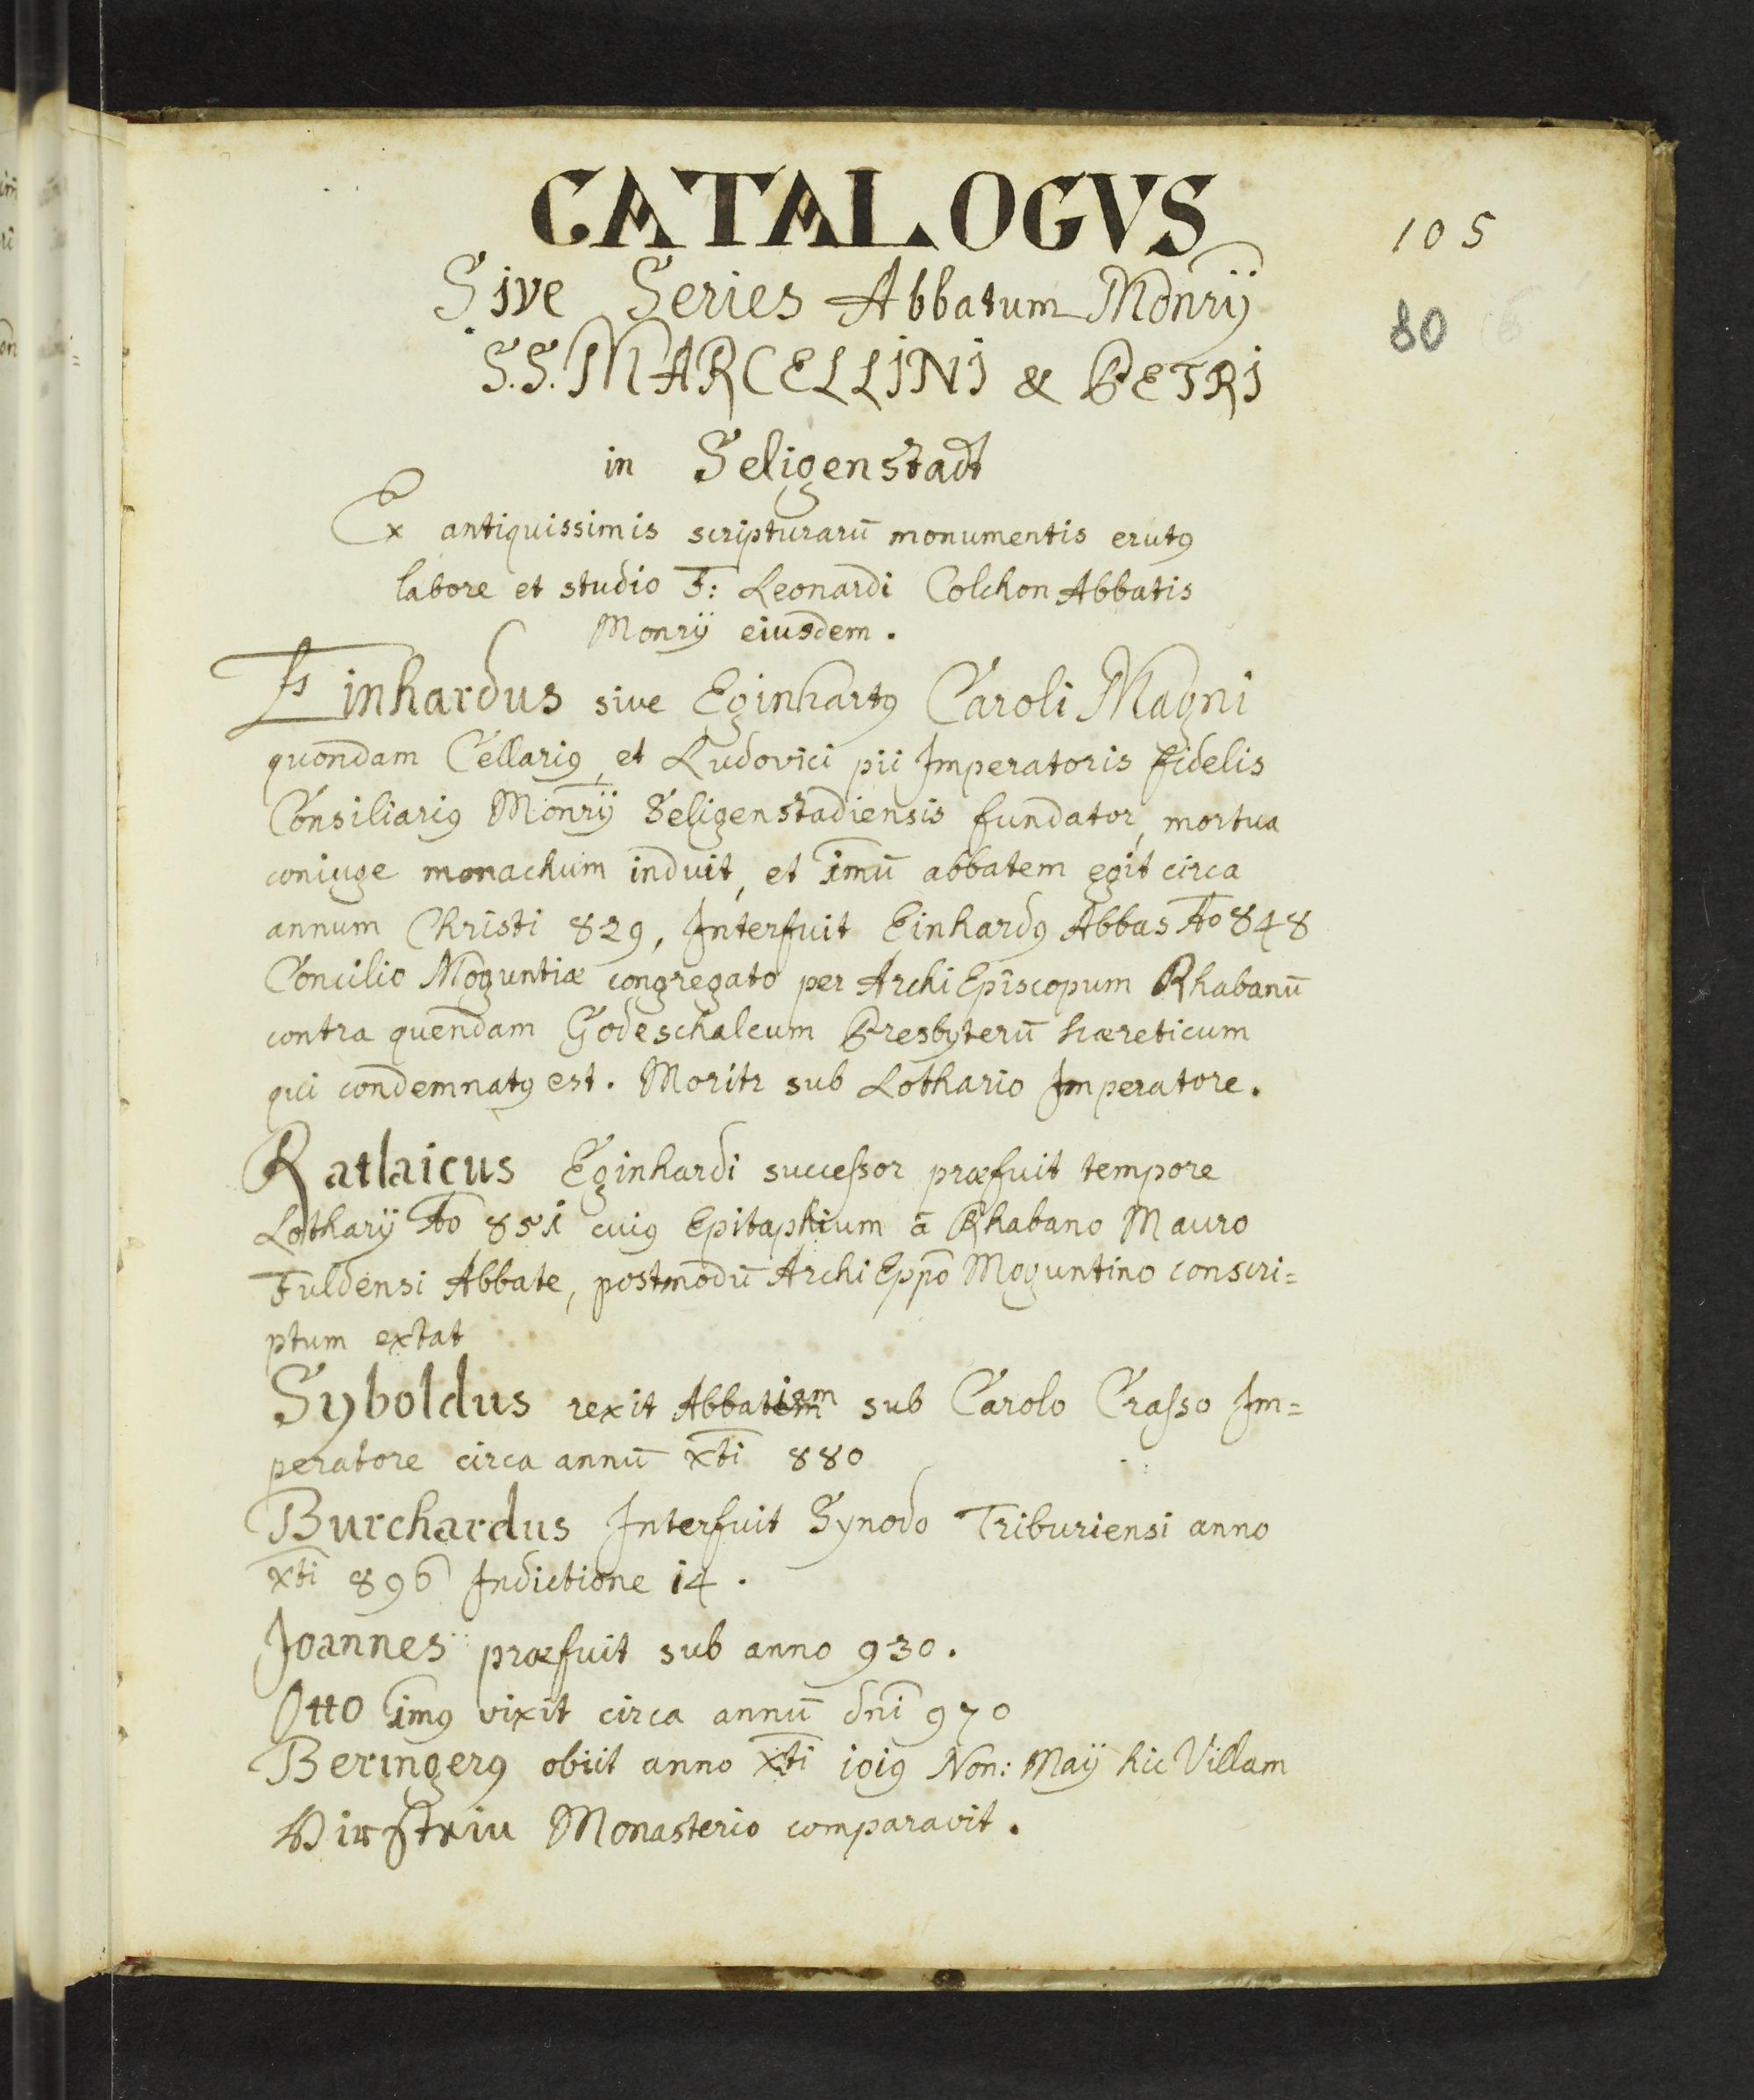 CATALOGVS
105
Sive Series Abbatum Monrij
80
S.S. MARCELLINI & PETRI
in Seligenstadt
Ex antiquissimis scripturarū monumentis erutꝯ
labore et studio F: Leonardi Colchon Abbatis
Monrij eiusdem.
Einhardus sive Eginhartꝯ Caroli Magni
quondam Cellariꝯ, et Ludovici pii Imperatoris fidelis
Consiliariꝯ Monrij Seligenstadiensis fundator, mortua
coniuge monachum induit, et imū abbatem egit circa
annum Christi 829, Interfuit Einhardꝯ Abbas Ao 848
Concilio Moguntiæ congregato per ArchiEpiscopum Rhabanū
contra quendam Godeschalcum Presbyterū hæreticum
qui condemnatꝯ est. Moritr sub Lothario Imperatore.
Ratlaicus Eginhardi successor præfuit tempore
Lotharij Ao 851 cuiꝯ Epitaphium ā Rhabano Mauro
Fuldensi Abbate, postmodū ArchiEppō Moguntino conscri=
ptum extat
Syboldus rexit Abbatiam sub Carolo Crasso Im=
peratore circa annū xti 880
Burchardus Interfuit Synodo Triburiensi anno
xti 896 Indictione 14.
Joannes præfuit sub anno 930.
Otto imꝯ vixit circa annū dni 970
Beringerꝯ obiit anno xti 1019 Non: Maij hic Villam
Monasterio comparavit.